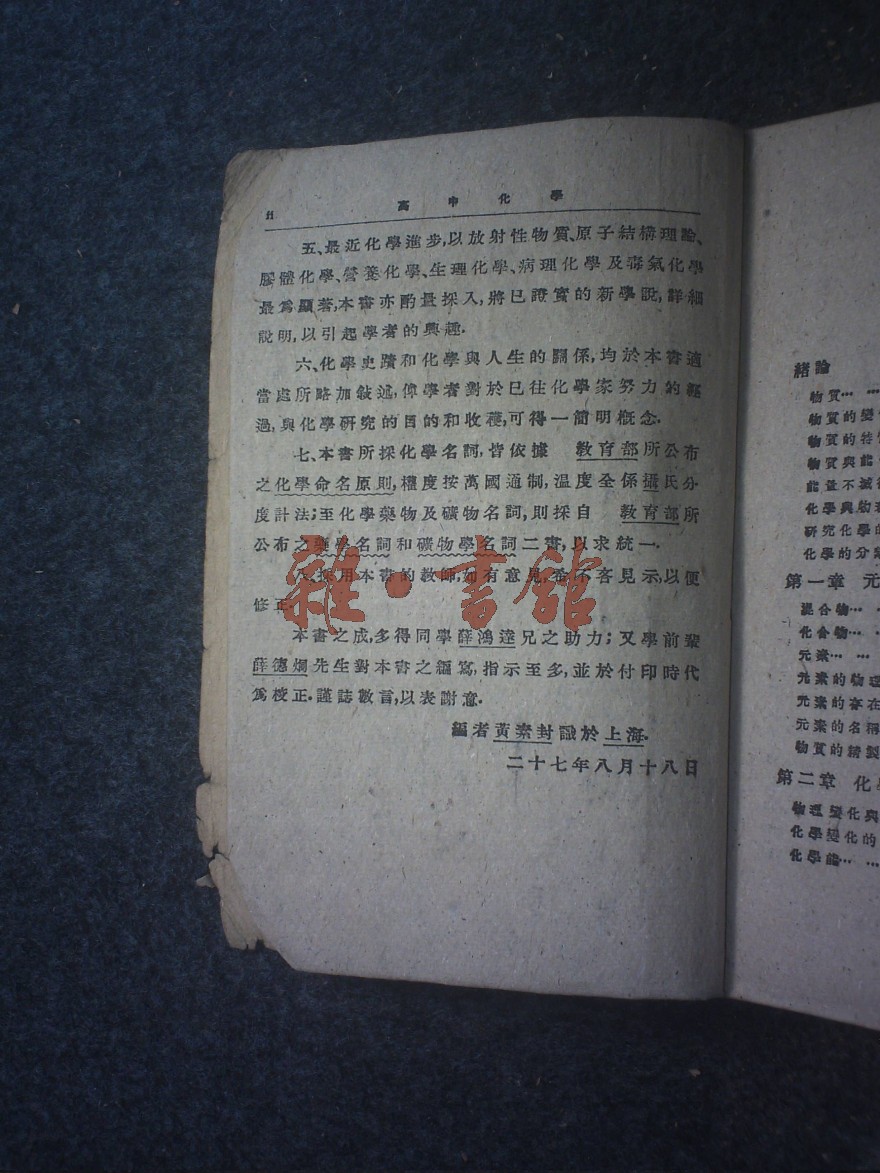 II
高中化學
五、最近化學進步,以放射性物質、原子結構理論、
膠體化學、營養化學、生理化學、病理化學及毒氣化學
最為顯著,本書亦酌量採入,將已證實的新學說,詳細
說明,以引起學者的興趣.
六、化學史蹟和化學與人生的關係,均於本書適
當處所略加敍述,俾學者對於已往化學家努力的經
過,與化學研究的目的和收穫,可得一簡明概念.
七、本書所採化學名詞,皆依據 教育部所公布
之化學命名原則,權度按萬國通制,溫度全係攝氏分
度計法;至化學藥物及礦物名詞,則採自 教育部所
公布之藥學名詞和礦物學名詞二書,以求統一.
八、採用本書的教師,如有意見,希不吝見示,以便
修正.
本書之成,多得同學薛鴻達兄之助力;又學前輩
薛德炯先生對本書之編寫,指示至多,並於付印時代
為校正.謹誌數言,以表謝意.
編者黃素封識於上海.
二十七年八月十八日
雜·書館
緒論
物質… …
物質的變
物質的特
物質與能
能量不滅
化學與物
研究化學的
化學的分
第一章 元
混合物… …
化合物… …
元素… …
元素的物理
元素的存在
元素的名稱
物質的精製
第二章 化學
物理變化與
化學變化的
化學能… …